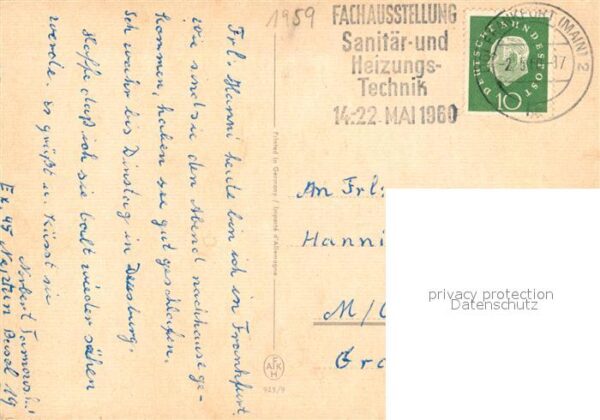 1959
FACHAUSSTELLUNG
Sanitär-und
Heizungs-
Technik
14.-22. MAI 1960
FRANKFURT (MAIN) 2
DEUTSCHE BUNDESPOST
10
Frl. Hanni heute bin ich in Frankfurt.
wie sind sie den Abend nachhause ge-
kommen, haben sie gut geschlafen,
Ich wahr bis Dinstag in Duisburg.
Hoffe daß ich sie balt wieder sehen
werde. es grüßt u. küsst sie
Norbert
Ex. 45 Neptun Basel 19
Printed in Germany / Importé d'Allemagne
An Frl:
Hanni
M/
Gra
privacy protection
Datenschutz
923/9